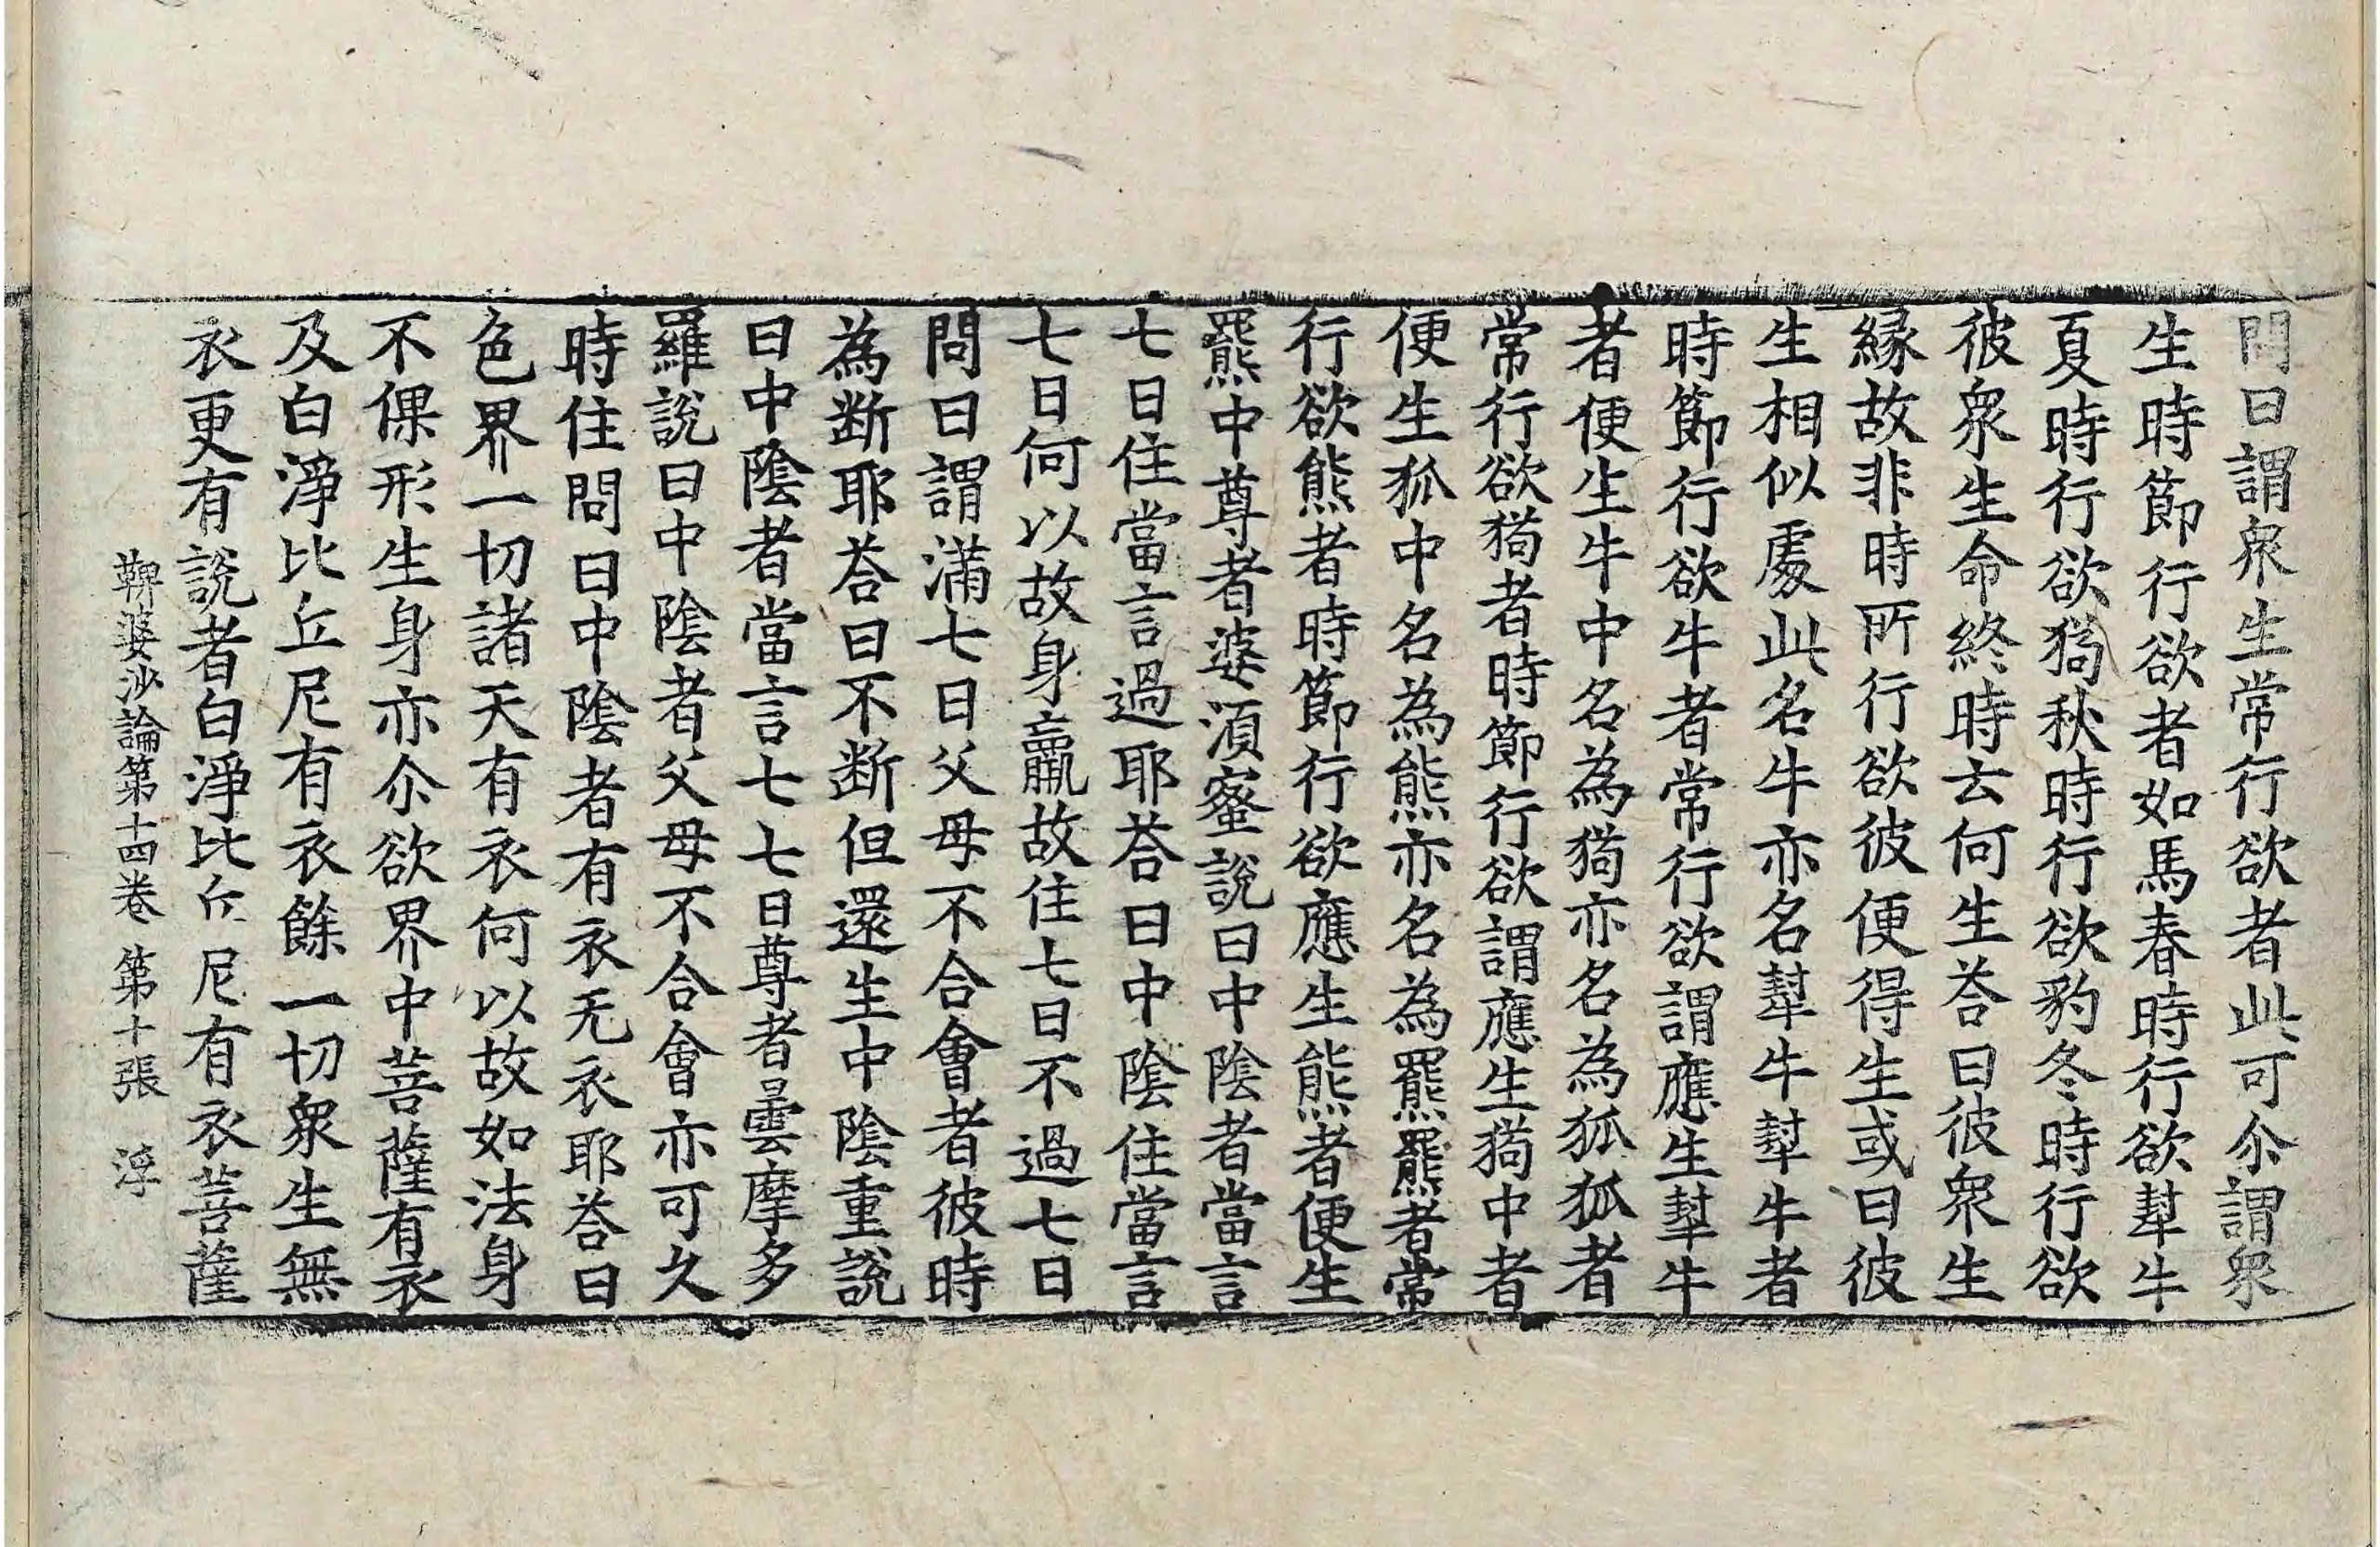 問曰謂衆生常行欲者此可尒謂衆
生時節行欲者如馬春時行欲犎牛
夏時行欲猗秋時行欲豹冬時行欲
彼衆生生命終時去何生荅曰彼衆生
縁故非時所行欲彼便得生或曰彼
生相似處此名牛亦名犎牛犎牛者
時節行欲牛者常行欲謂應生犎牛
者便生牛中名為猗亦名為狐狐者
常行欲猗者時節行欲謂應生猗中者
便生狐中名為熊亦名為羆羆者常
行欲熊者時節行欲應生熊者便生
羆中尊者婆湏蜜說曰中陰者當言
七日住當言過耶荅曰中陰住當言
七日何以故身羸故住七日不過七日
問曰謂滿七日父母不合會者彼時
為断耶荅曰不断但還生中陰重說
曰中陰者當言七七日尊者曇摩多
羅說曰中陰者父母不合會亦可久
時住問曰中陰者有衣无衣耶荅曰
色界一切諸天有衣何以故如法身
不倮形生身亦尒欲界中菩薩有衣
及白淨比丘尼有衣餘一切衆生無
衣更有說者白淨比丘尼有衣菩薩
鞞婆沙論第十四卷 第十張 浮